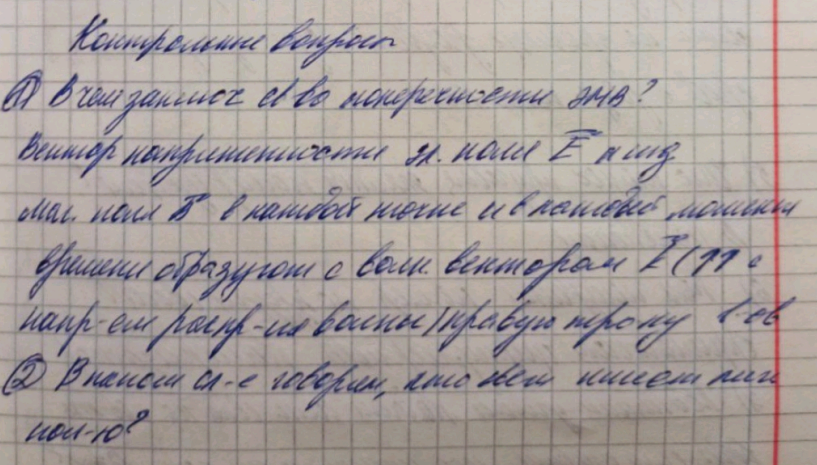 Контрольные вопросы
① В чем заключ св-во поперечности ЭМВ?
Вектор напряженности эл. поля E и инд
маг. поля B в каждой точке и в каждый момент
времени образуют с волн. вектором k (↑↑ с
напр-ем распр-ия волны) правую тройку в-ов
② В каком сл-е говорят, что свет имеет лин
пол-ю?